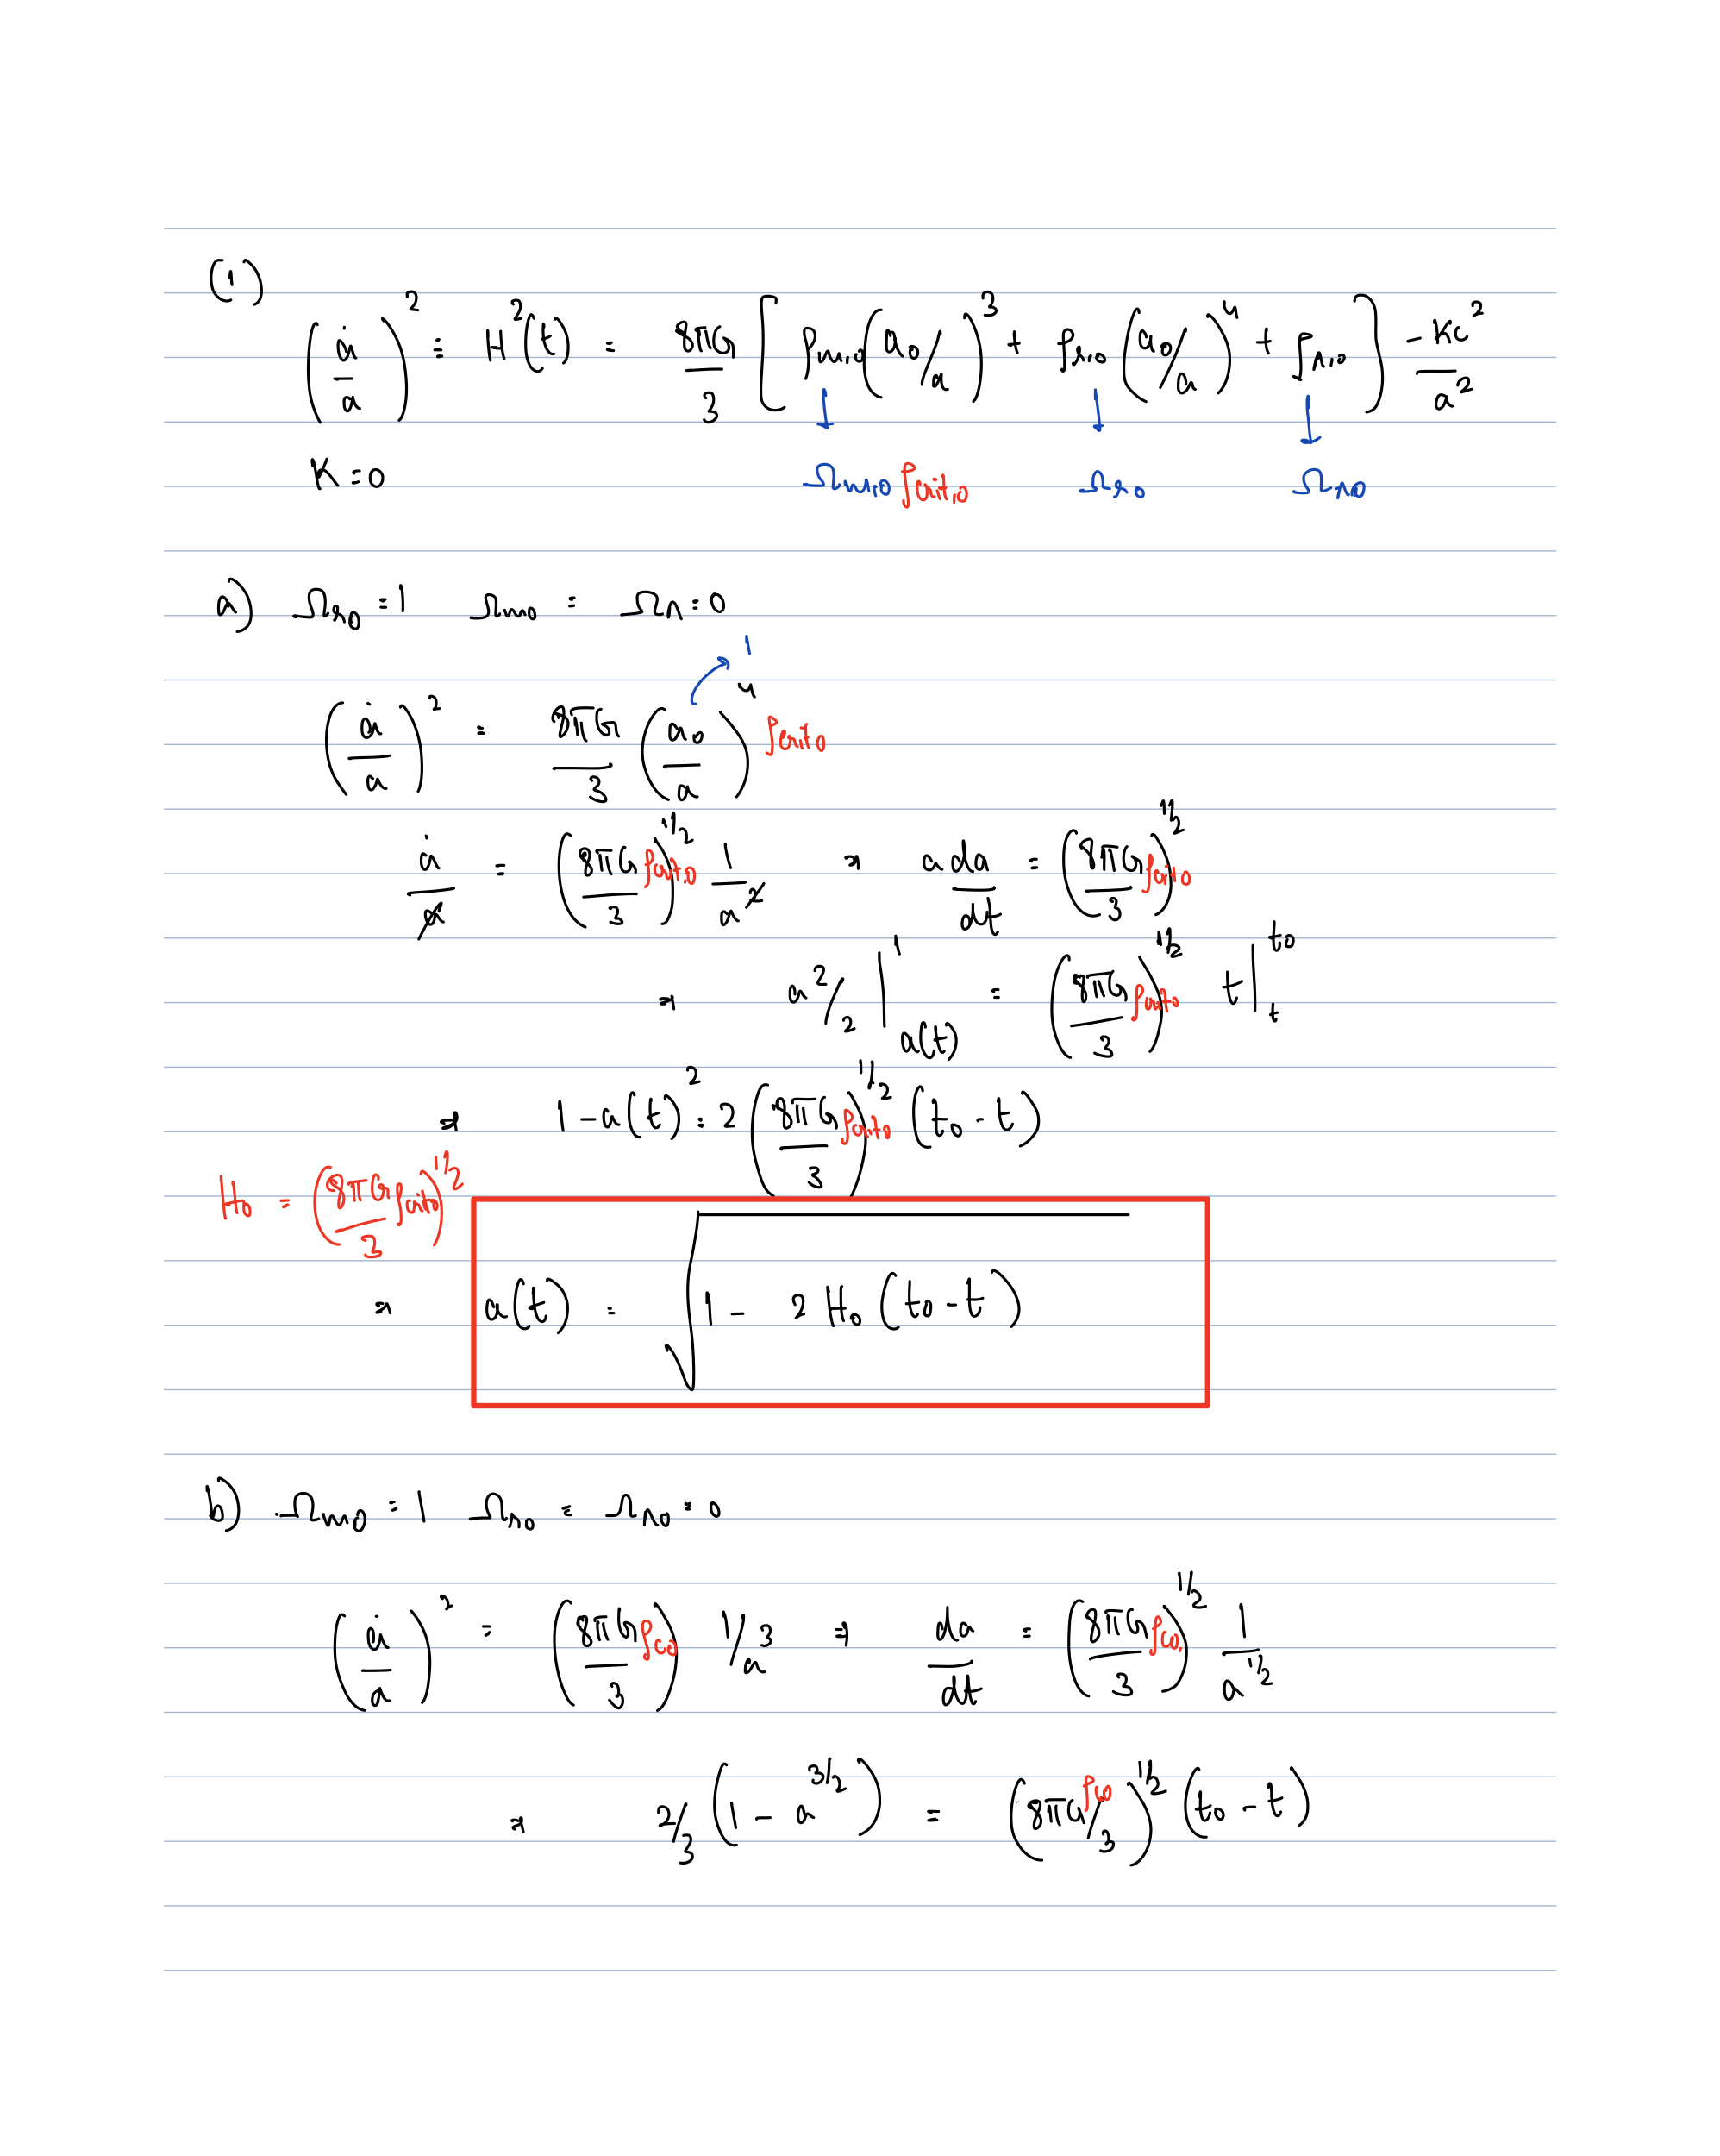 (1)
(ȧ/a)² = H²(t) = 8πG/3 [ρm,0 (a0/a)³ + ρr,0 (a0/a)⁴ + ρΛ,0] - Kc²/a²
K=0 Ωm,0 ρcrit,0 Ωr0 ΩΛ0
a) Ωr0 = 1 Ωm0 = ΩΛ = 0
1
(ȧ/a)² = 8πG/3 (a0/a)⁴ ρcrit0
ȧ/a = (8πG/3 ρcrit,0)^1/2 1/a² ⇒ a da/dt = (8πG/3 ρcrit0)^1/2
⇒ a²/2 |_a(t)^1 = (8πG/3 ρcrit0)^1/2 t|_t^t0
⇒ 1 - a(t)² = 2 (8πG/3 ρcrit0)^1/2 (t0 - t)
H0 = (8πG/3 ρcrit0)^1/2
⇒ a(t) = √(1 - 2 H0 (t0 - t))
b) Ωm0 = 1 Ωr0 = ΩΛ0 = 0
(ȧ/a)² = (8πG/3 ρc0) 1/a³ ⇒ da/dt = (8πG/3 ρc0)^1/2 1/a^1/2
⇒ 2/3 (1 - a^3/2) = (8πGρc0/3)^1/2 (t0 - t)